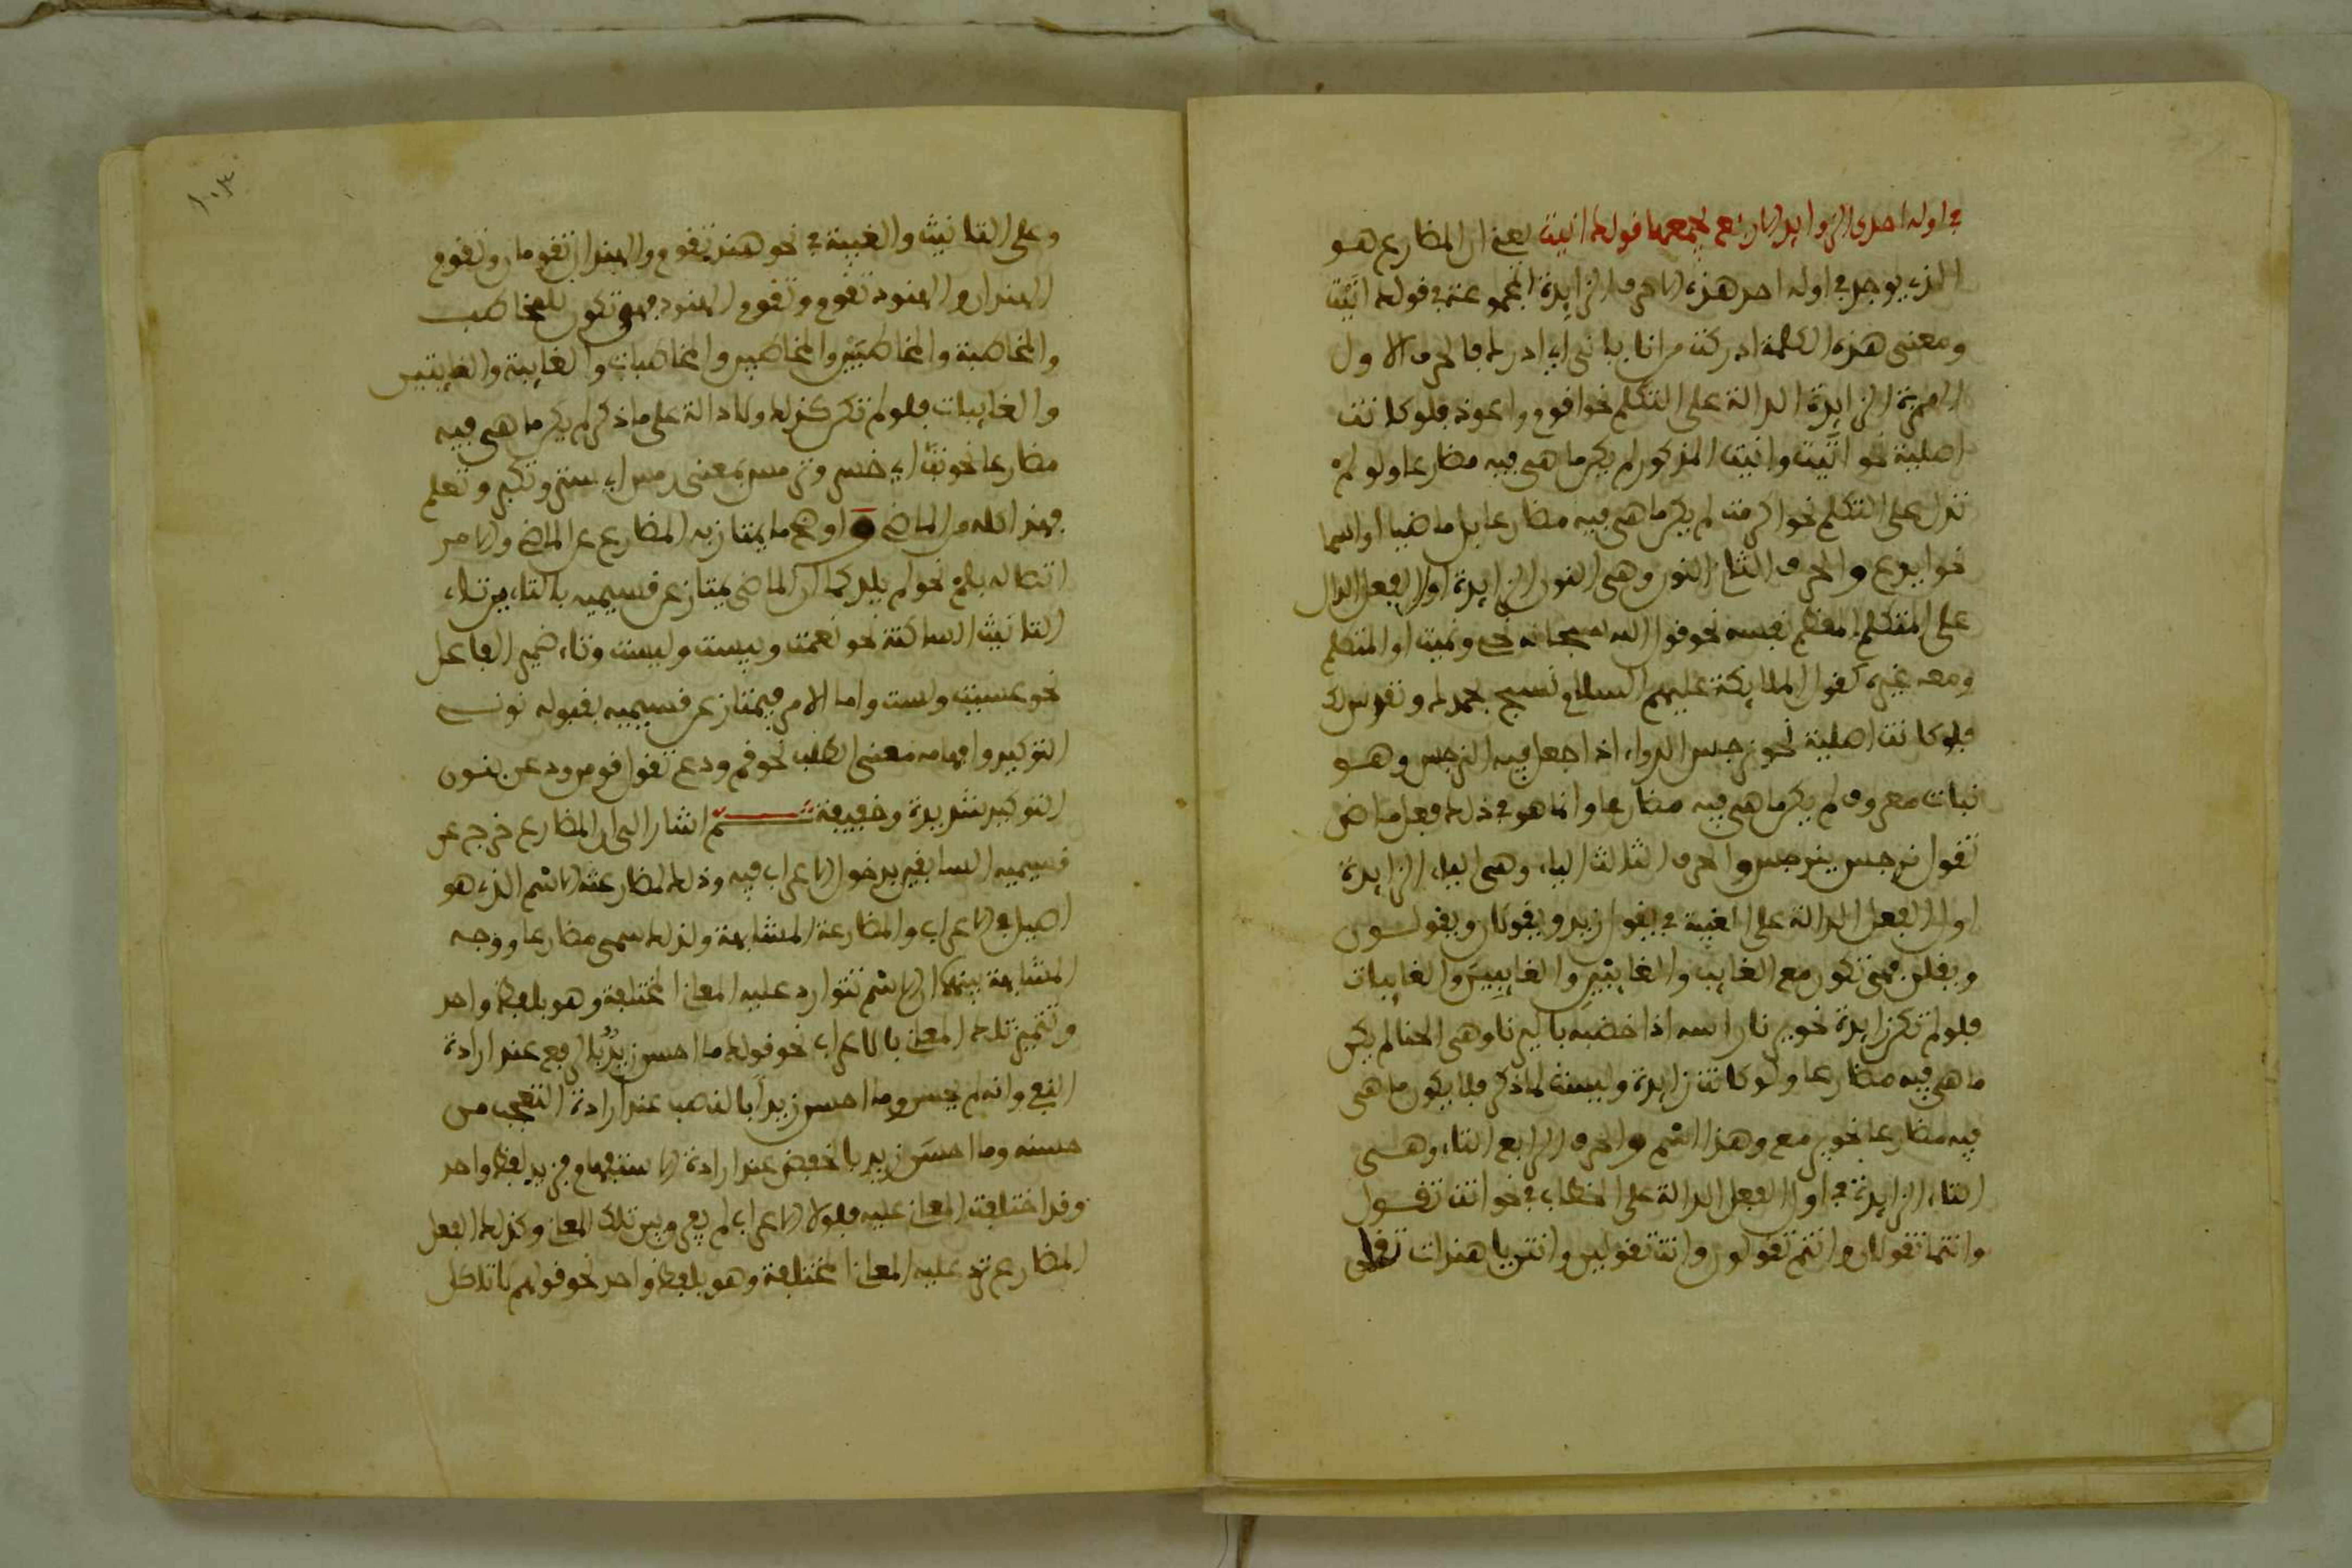 في اوله احدى الزوايد الاربع يجمعها قولك انيت يعني ان المضارع هو
الذي يوجد في اوله احد هذه الاحرف الزايدة المجموعة في قولك انيت
ومعنى هذه الكلمة ادركت من انا يا ني اي ادرك فالحرف الاول
الهمزة الزايدة الدالة على التكلم نحو اقوم واعوذ فلو كانت
اصلية نحو اتيت وانيت المذكور لم يكن ما هي فيه مضارعا ولو لم
تدل على التكلم نحو اكرمت لم يكن ما هي فيه مضارعا بل ماضيا او اسما
نحو ايدع والحرف الثاني النون وهي النون الزايدة اول الفعل الدال
على المتكلم المعظم نفسه نحو قول الله سبحانه نحي ونميت او المتكلم
ومعه غيره كقول الملايكة عليهم السلام نسبح بحمدك ونقدس لك
فلو كانت اصلية نحو نرجس الدواء اذا جعل فيه النرجس وهو
نبات معروف لم يكن ما هي فيه مضارعا وانما هو في ذلك فعل ماض
تقول نرجس ينرجس والحرف الثالث الياء وهي الياء الزايدة
اول الفعل الدالة على الغيبة في يقول زيد ويقولان ويقولون
ويقلن فهي تكون مع الغايب والغايبَيْن والغايبِين والغايبات
فلو لم تكن زايدة نحو يرنا راسه اذا خضبه باليرنا وهي الحنا لم يكن
ما هي فيه مضارعا ولو كانت زايدة وليست لما ذكر فلا يكون ما هي
فيه مضارعا نحو يرمع وهذا اسم والحرف الرابع التاء وهي
التاء الزايدة في اول الفعل الدالة على الخطاب في نحو انت تقول
وانتما تقولان وانتم تقولون وانت تقولين وانتن يا هندات تقلن
وعلى التانيث والغيبة في نحو هند تقوم والهندان تقومان وتقوم
الهندان والهنود تقوم وتقوم الهنود فهي تكون للمخاطب
والمخاطبة والمخاطبَيْن والمخاطبين والمخاطبات والغايبة والغايبتين
والغايبات فلو لم تكن كذلك ولا دالة على ما ذكر لم يكن ما هي فيه
مضارعا نحو اي خسر وترمس بمعنى رمس اي ستر وتكبر وتعلم
فهذا كله من الماضي واوضح ما يمتاز به المضارع عن الماضي والامر
اتصاله بلم نحو لم يلد كما ان الماضي يمتاز عن قسيميه بالتاءين تاء
التانيث الساكنة نحو نعمت وبيست وليست وتاء ضمير الفاعل
نحو عسيت ولست واما الامر فيمتاز عن قسيميه بقبوله نون
التوكيد وافهامه معنى الطلب نحو قم ودع تقول قومن ودعن بنون
التوكيد شديدة وخفيفة ثم اشار الى ان المضارع خرج عن
قسيميه السابقين بدخول الاعراب فيه وذلك لمضارعته الاسم الذي هو
اصيل في الاعراب والمضارعة المشابهة ولذلك سمي مضارعا ووجه
المشابهة بينهما ان الاسم تتوارد عليه المعاني المختلفة وهو بلفظ واحد
وتتميز تلك المعاني بالاعراب نحو قولك ما احسن زيدٌ بالرفع عند ارادة
النفي وانه لم يحسن وما احسن زيداً بالنصب عند ارادة التعجب من
حسنه وما احسن زيد بالخفض عند ارادة الاستفهام فزيد لفظ واحد
وقد اختلفت المعاني عليه فلولا الاعراب لم يفرق بين تلك المعاني وكذلك الفعل
المضارع ترد عليه المعاني المختلفة وهو بلفظ واحد نحو قولهم لا تاكل